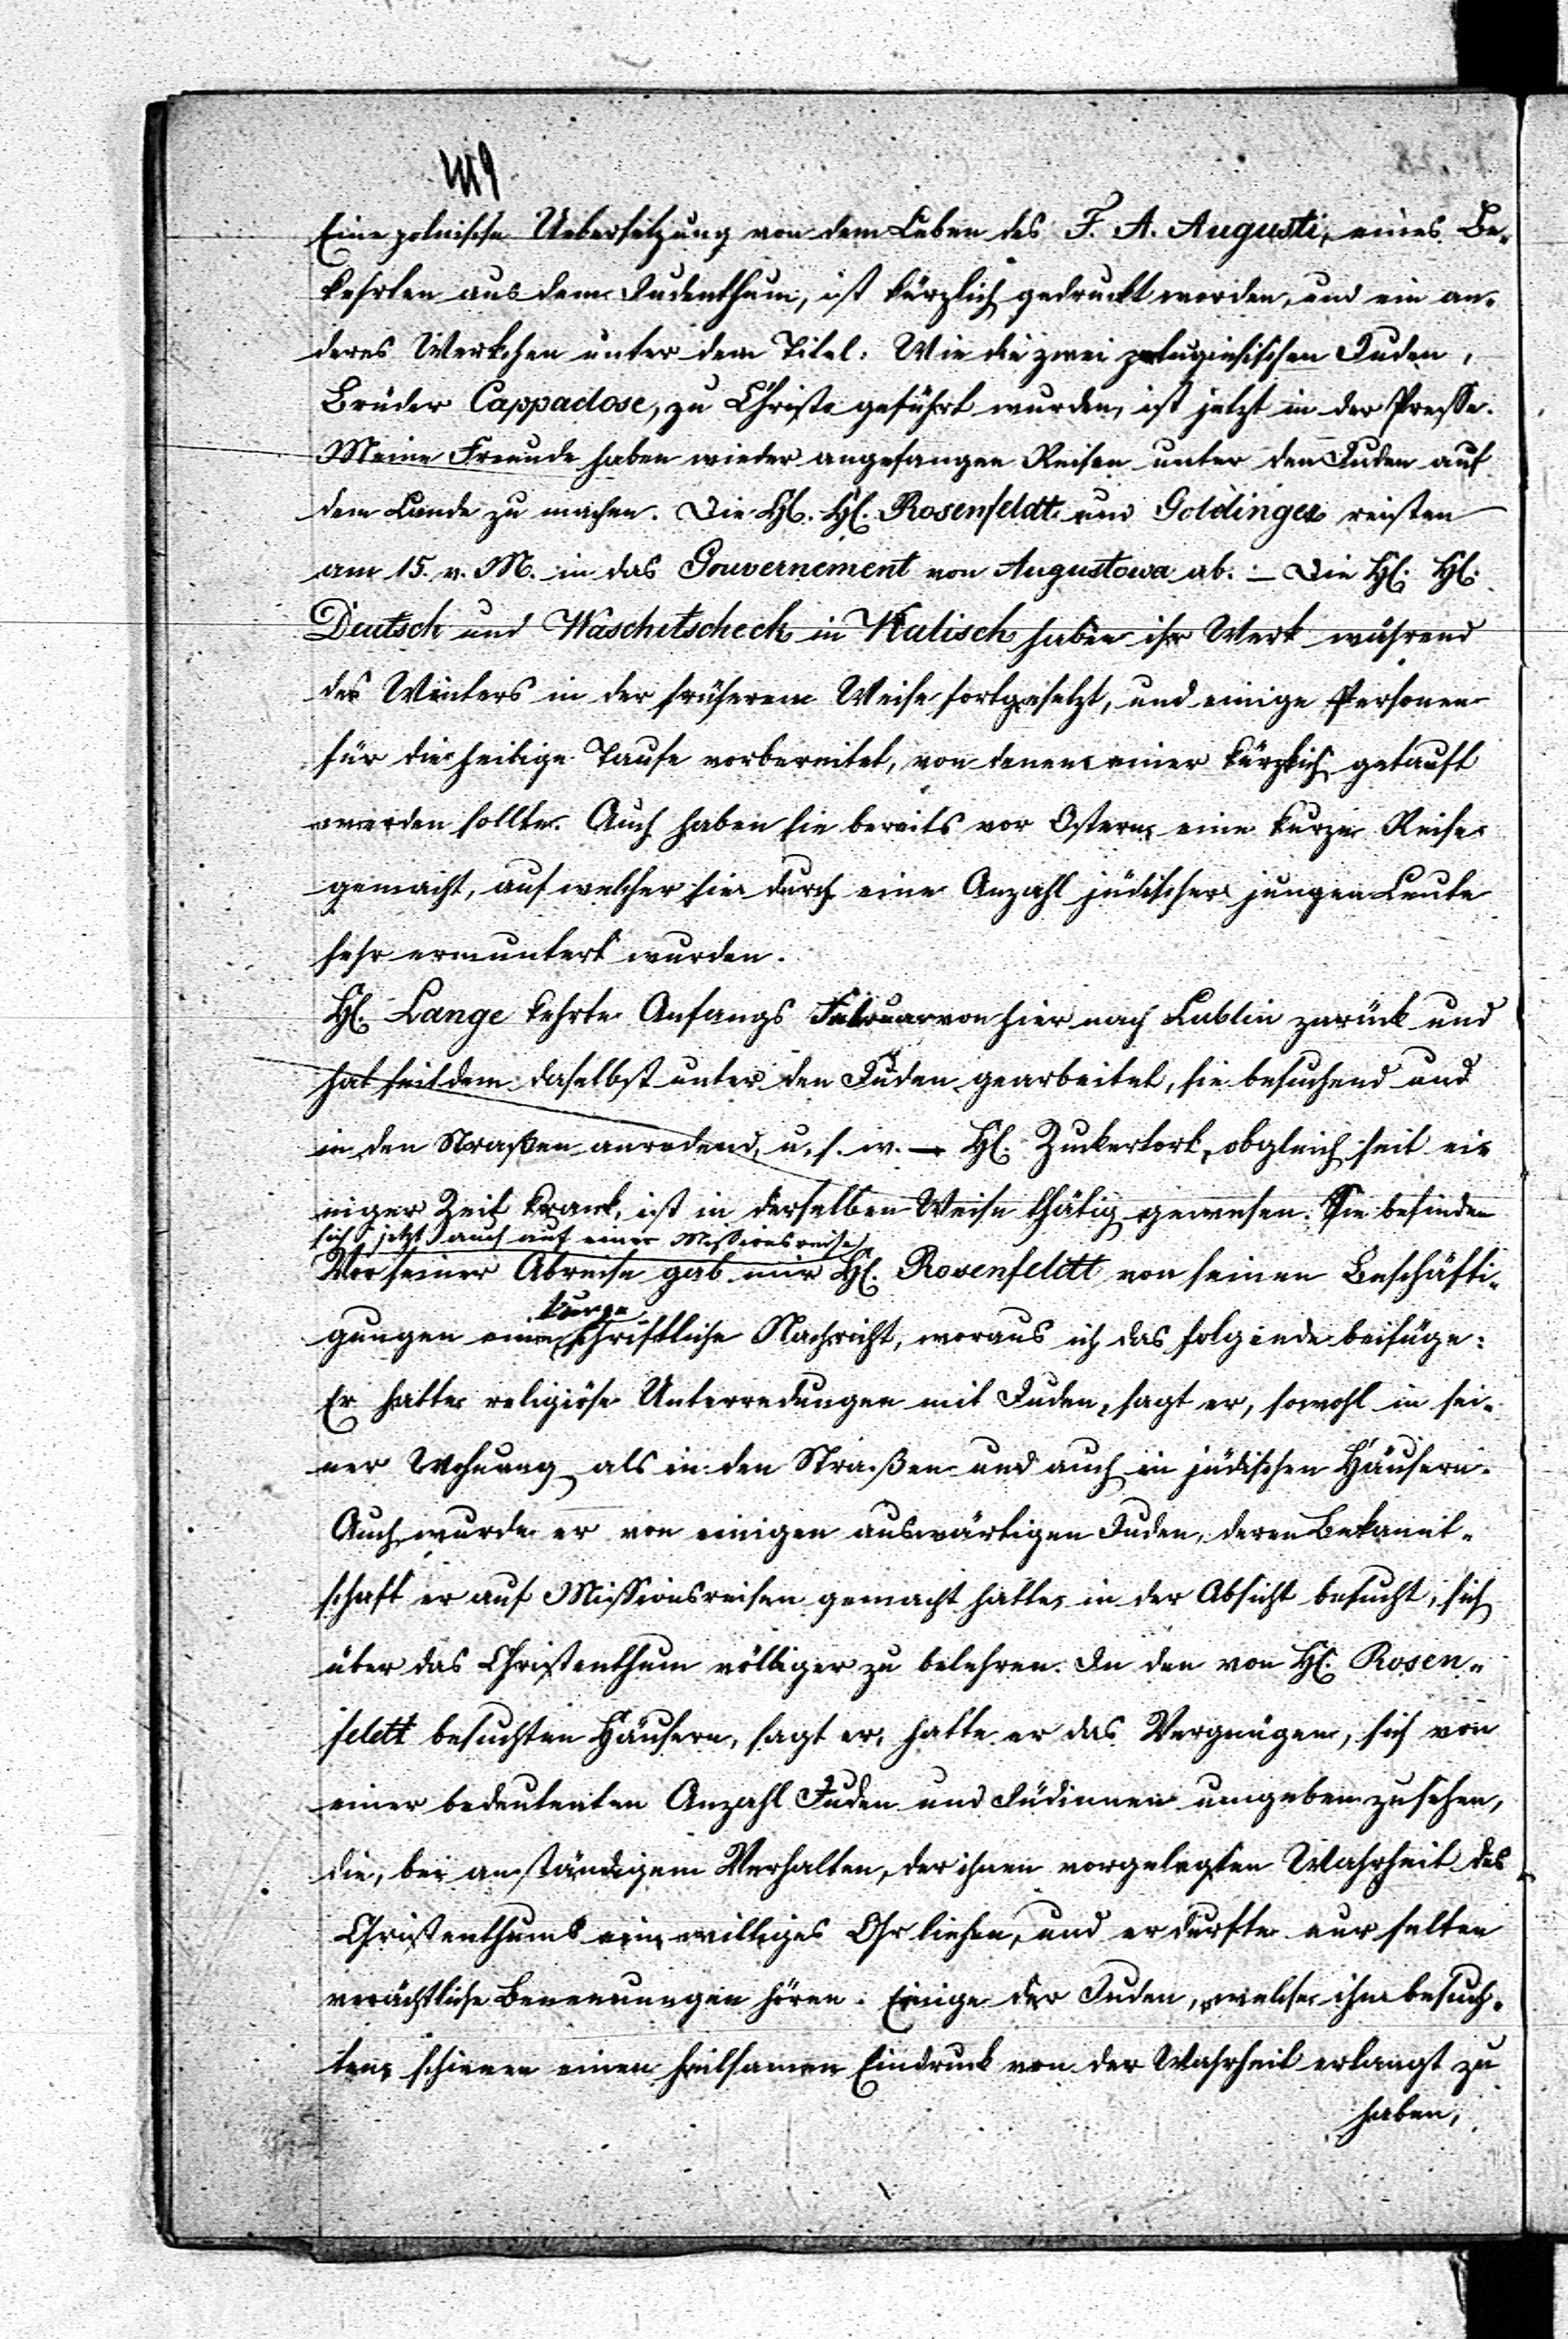 Eine polnische Uebersetzung von dem Leben des F. A. Augusti, eines Be-
kehrten aus dem Judenthum, ist kürzlich gedruckt worden, und ein an-
deres Werkchen unter dem Titel: Wie die zwei portugiesischen Juden,
Brüder Cappadose, zu Christo geführt wurden, ist jetzt in der Presse.
Meine Freunde haben wieder angefangen Reisen unter den Juden auf
dem Lande zu machen. Die HH. HH. Rosenfeldt und Goldinger reisten
am 15. v. M. in das Gouvernement von Augustowa ab. – Die HH. HH.
Deutsch und Waschitscheck in Kalisch haben ihr Werk während
des Winters in der früheren Weise fortgesetzt, und einige Personen
für die heilige Taufe vorbereitet, von denen einer kürzlich getauft
werden sollte. Auch haben sie bereits vor Ostern eine kurze Reise
gemacht, auf welcher sie durch eine Anzahl jüdischer jungen Leute
sehr ermuntert wurden.
H. Lange kehrte Anfangs Februar von hier nach Lublin zurück und
hat seitdem daselbst unter den Juden gearbeitet, sie besuchend und
in den Straßen anredend, u. s. w. – H. Zuckertort, obgleich seit ei-
niger Zeit krank, ist in derselben Weise thätig gewesen. Sie befinden
sich jetzt auch auf einer Missionsreise
Vor seiner Abreise gab mir H. Rosenfeldt von seinen Beschäfti-
kurze
gungen eine schriftliche Nachricht, woraus ich das folgende beifüge:
Er hatte religiöse Unterredungen mit Juden, sagt er, sowohl in sei-
ner Wohnung als in den Straßen und auch in jüdischen Häusern.
Auch wurde er von einigen auswärtigen Juden, deren Bekannt-
schaft er auf Missionsreisen gemacht hatte, in der Absicht besucht, sich
über das Christenthum völliger zu belehren. In den von H. Rosen-
feldt besuchten Häusern, sagt er, hatte er das Vergnügen, sich von
einer bedeutenten Anzahl Juden und Jüdinnen umgeben zu sehen,
die, bei anständigem Verhalten, der ihnen vorgelegten Wahrheit des
Christenthums ein williges Ohr liehen, und er durfte nur selten
verächtliche Benennungen hören. Einige der Juden, welche ihn besuch-
ten, schienen einen heilsamen Eindruck von der Wahrheit erlangt zu
haben,